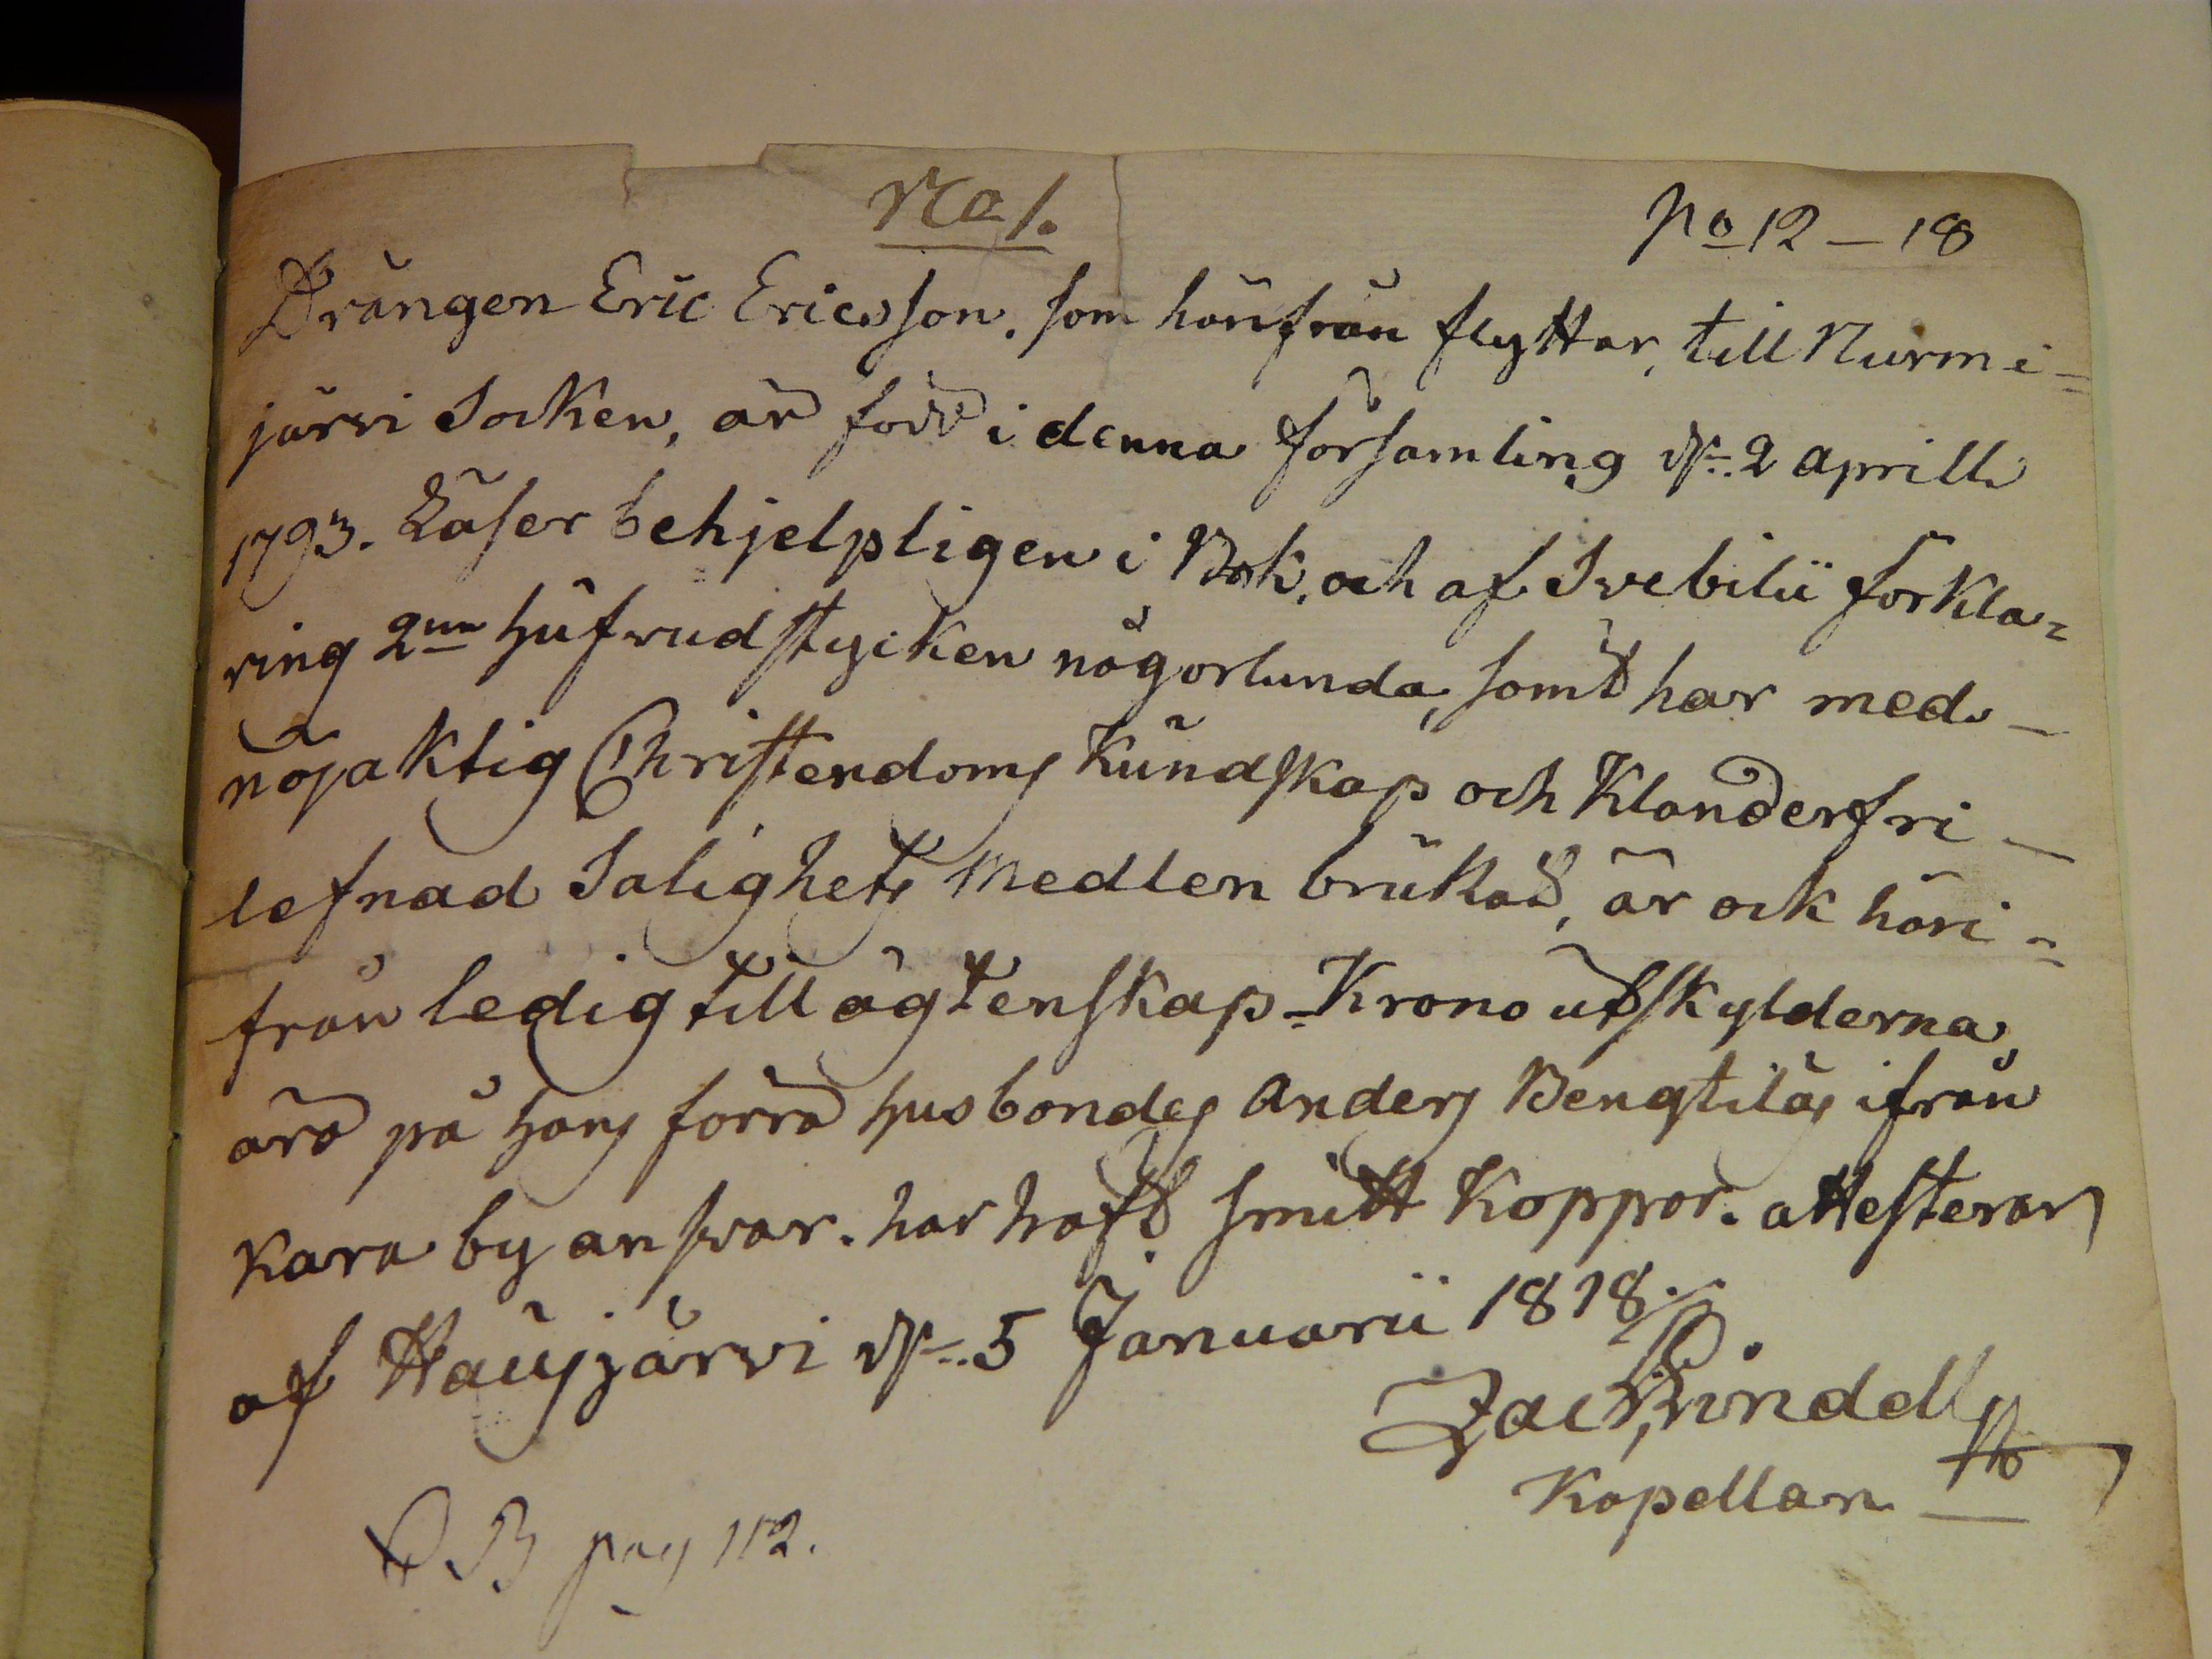 No 1.
No 12 – 18
Drängen Eric Ericsson, som härifrån flyttar, till Nurmi=
järvi Socken, är född i denna församling d. 2 aprill
1793. Läser behjelpligen i Bok, och af Svebilii förkla=
ring 2ne hufvudstycken någorlunda, samt har med –
nöjaktig Christendoms Kundskap och Klanderfri –
lefnad Salighets Medlen brukat, är ock häri=
från ledig till ägtenskap – Krono utskylderna
ära på hans förra husbondes Anders Bengtiläs ifrån
Kara by ansvar. har haft smitt Koppor. attesterar
af Hausjärvi d. 5 Januarii 1818.
Zac Lindell
Kapellan
B pag 112.